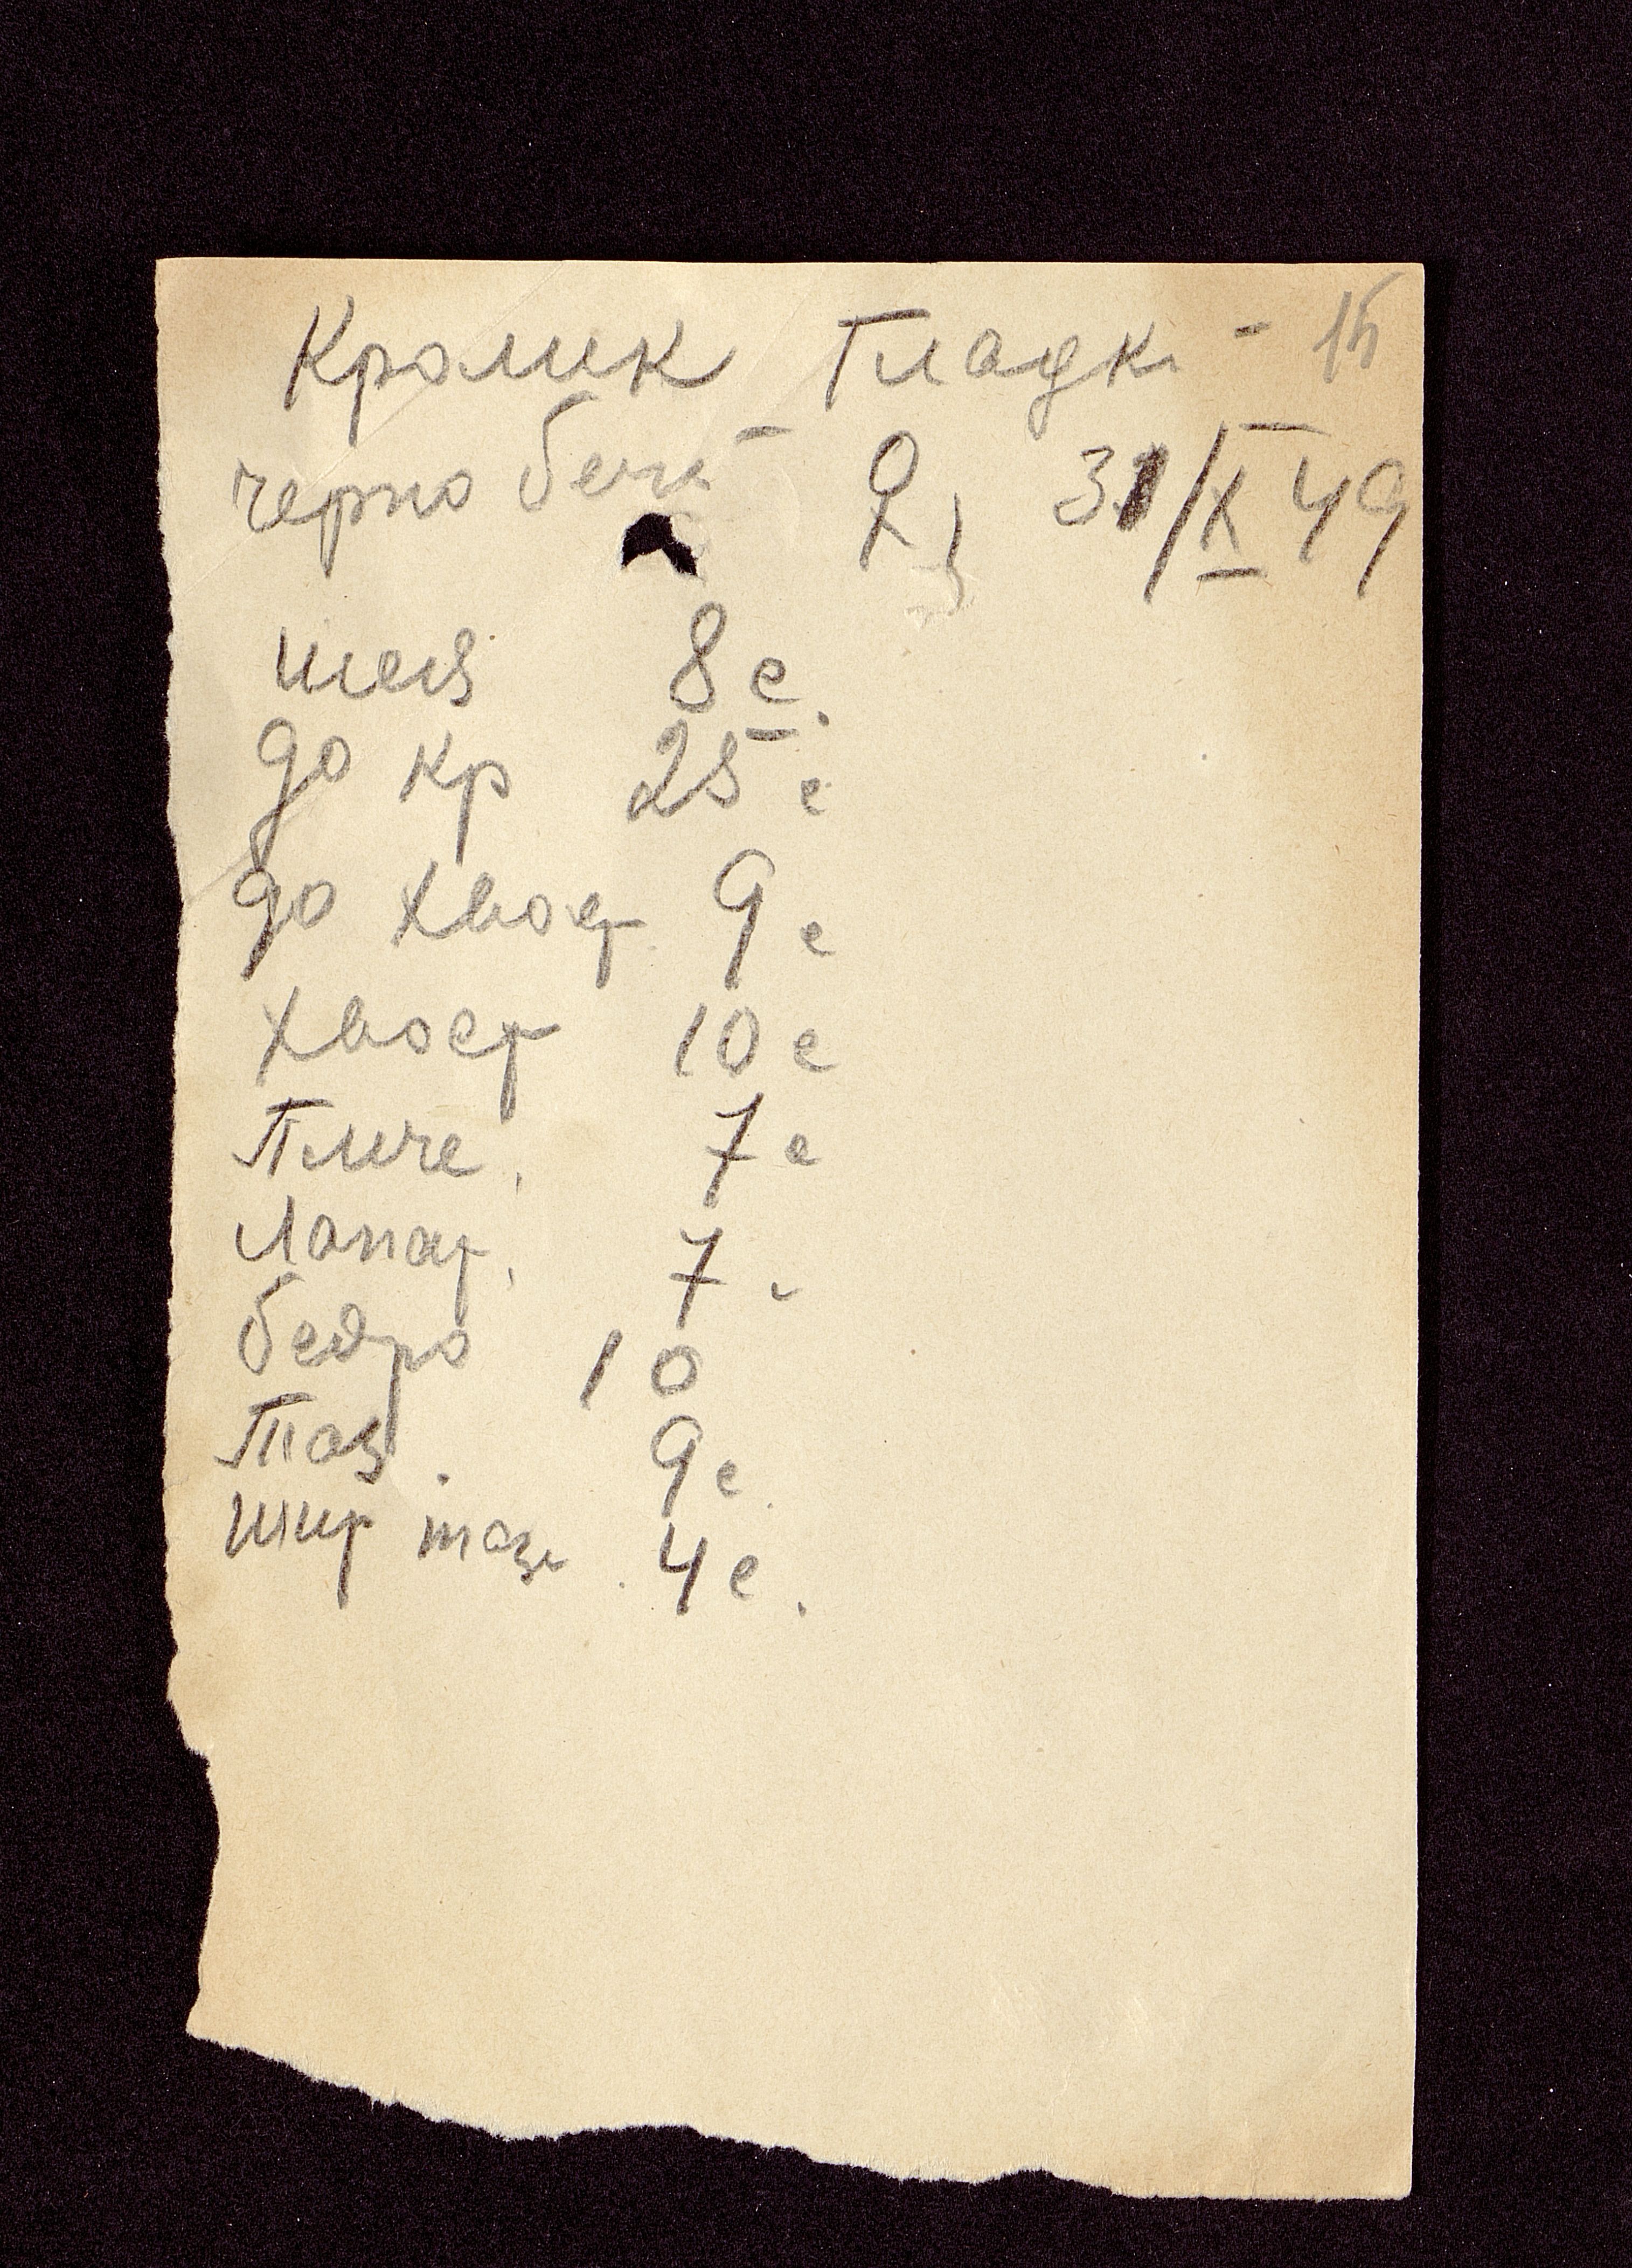 Кролик Гладк - 15
черно бел ♀, 31/X 49
шея 8 с.
до кр 25 с
до хвост. 9 с
хвост 10 с
Плече, 7 с
Лопат, 7 с
бедро 10
Таз. 9 с.
шир таза. 4 с.